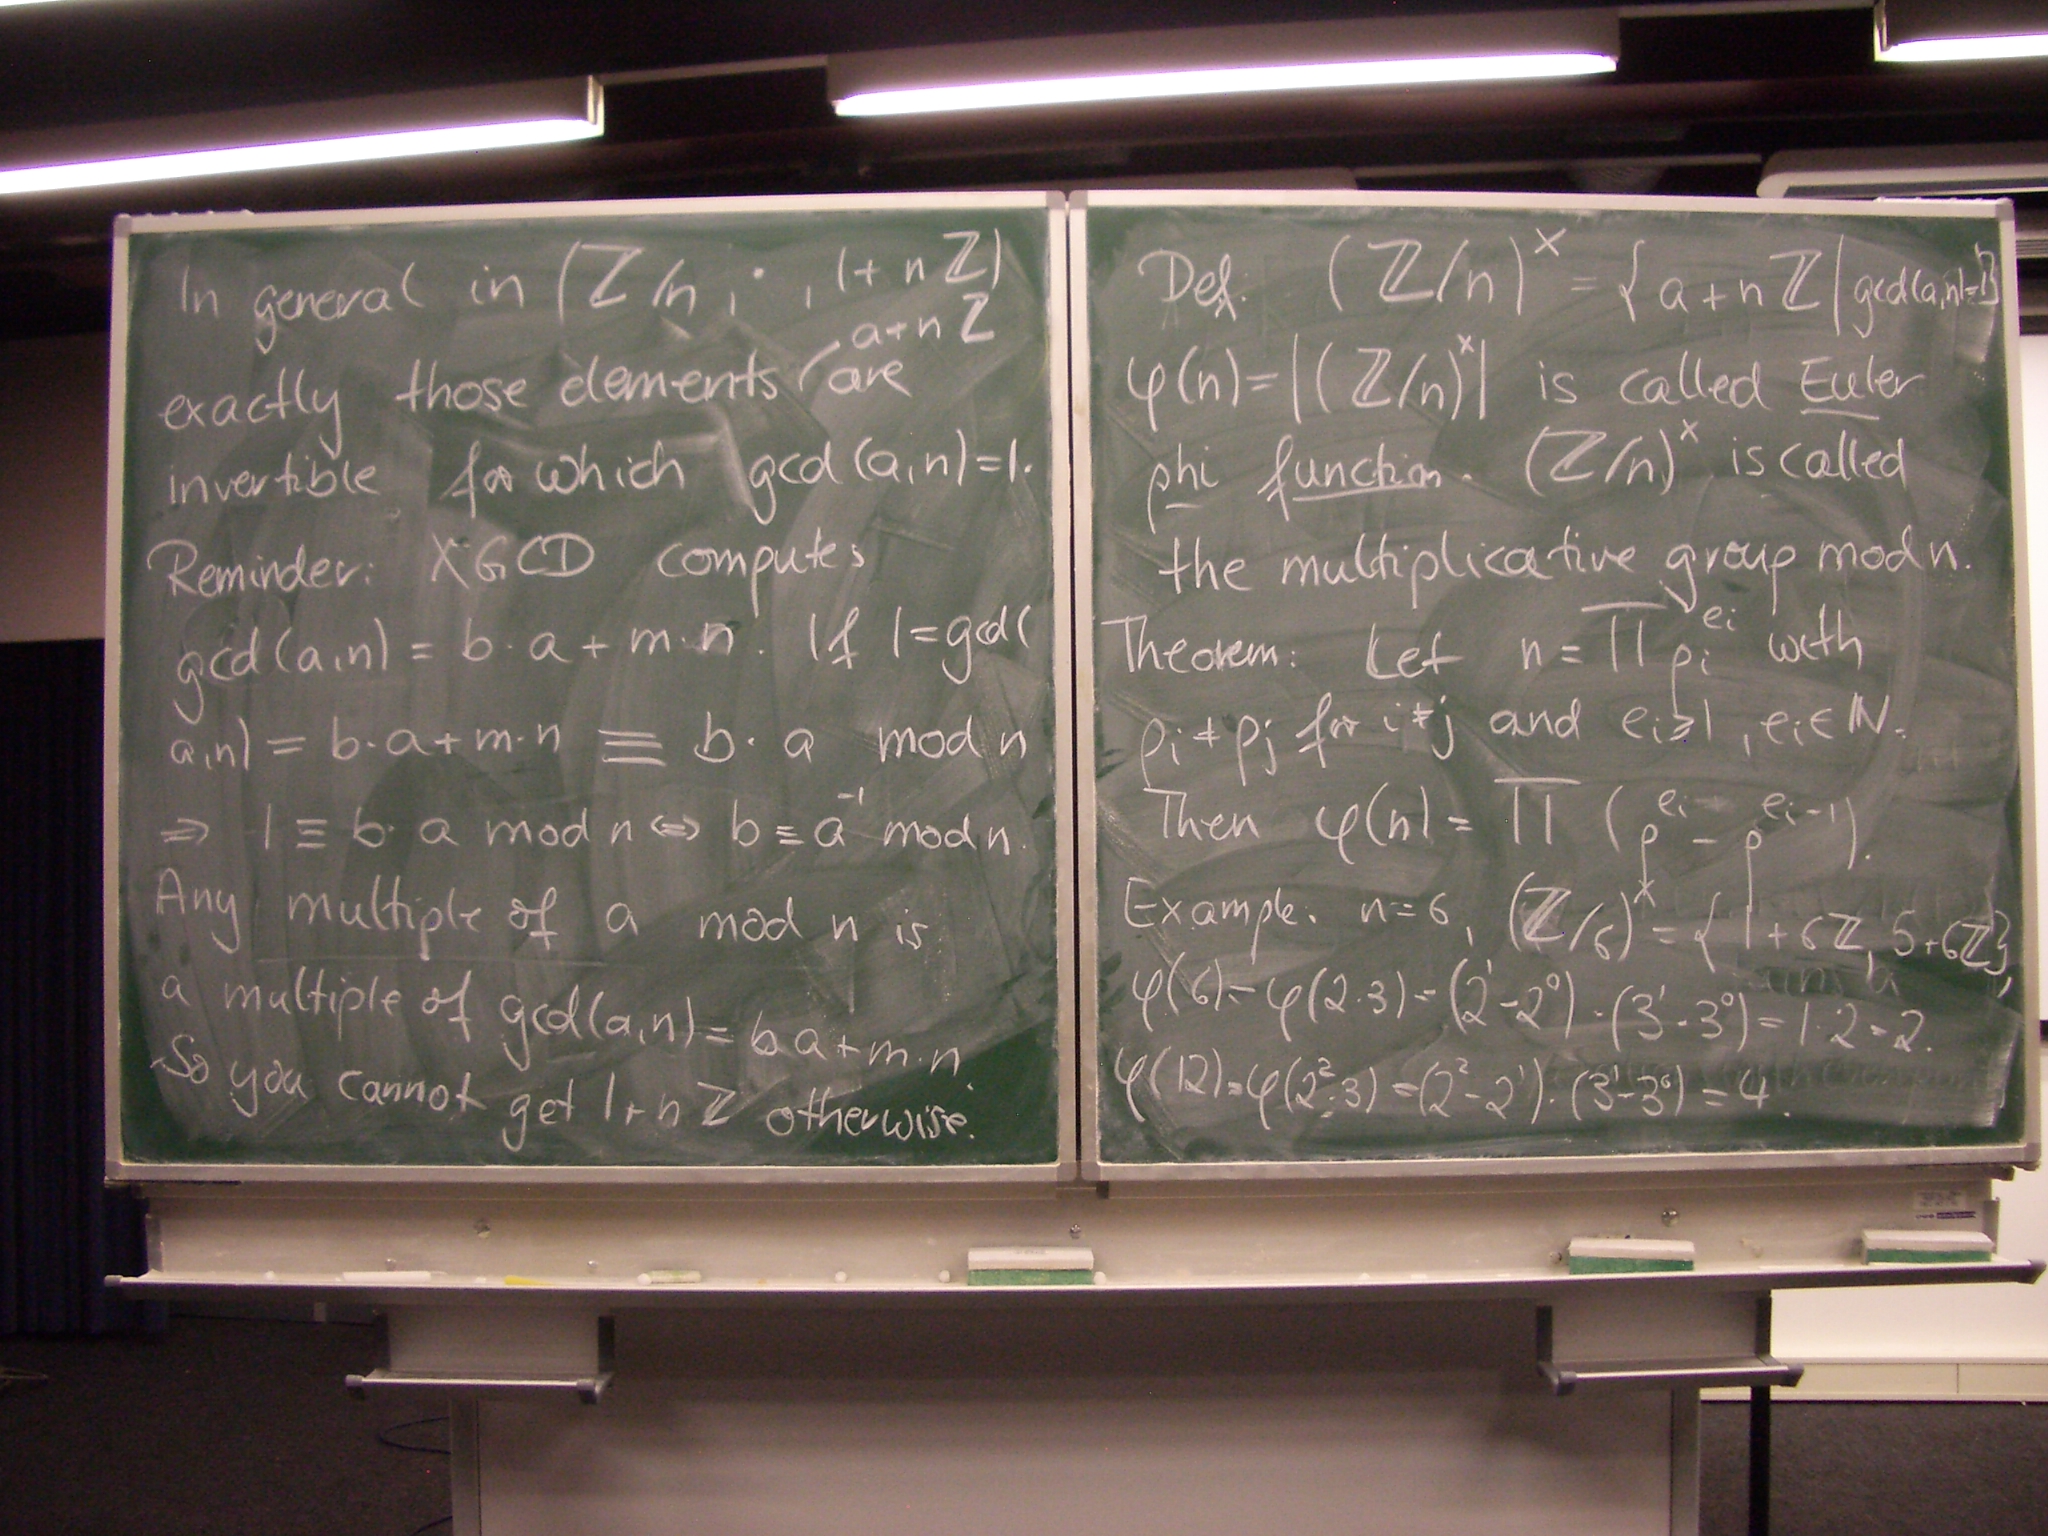 In general in (ℤ/n, ·, 1+nℤ)
a+nℤ
exactly those elements are
invertible for which gcd(a,n)=1.
Reminder: XGCD computes
gcd(a,n) = b·a + m·n. If 1=gcd(
a,n) = b·a+m·n ≡ b·a mod n
⇒ 1 ≡ b·a mod n ⇔ b ≡ a⁻¹ mod n.
Any multiple of a mod n is
a multiple of gcd(a,n) = b·a+m·n.
So you cannot get 1+nℤ otherwise.
Def. (ℤ/n)^× = {a+nℤ | gcd(a,n)=1}
φ(n)=|(ℤ/n)^×| is called Euler
phi function. (ℤ/n)^× is called
the multiplicative group mod n.
Theorem: Let n = ∏ p_i^{e_i} with
p_i ≠ p_j for i≠j and e_i ≥ 1, e_i ∈ ℕ.
Then φ(n) = ∏ (p^{e_i} - p^{e_i-1}).
Example: n=6, (ℤ/6)^× = {1+6ℤ, 5+6ℤ},
φ(6) = φ(2·3) = (2¹-2⁰)·(3¹-3⁰) = 1·2 = 2.
φ(12) = φ(2²·3) = (2²-2¹)·(3¹-3⁰) = 4.